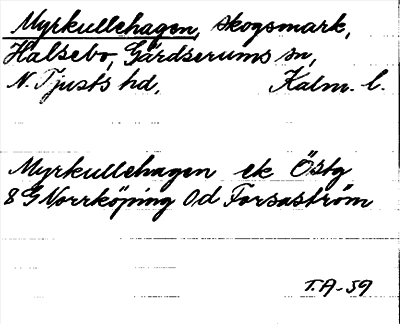 Myrkullehagen, skogsmark,
Halsebo, Gärdserums sn,
N. Tjusts hd, Kalm. l.
Myrkullehagen ek Östg
8 G Norrköping 0d Forsaström
T.A-59